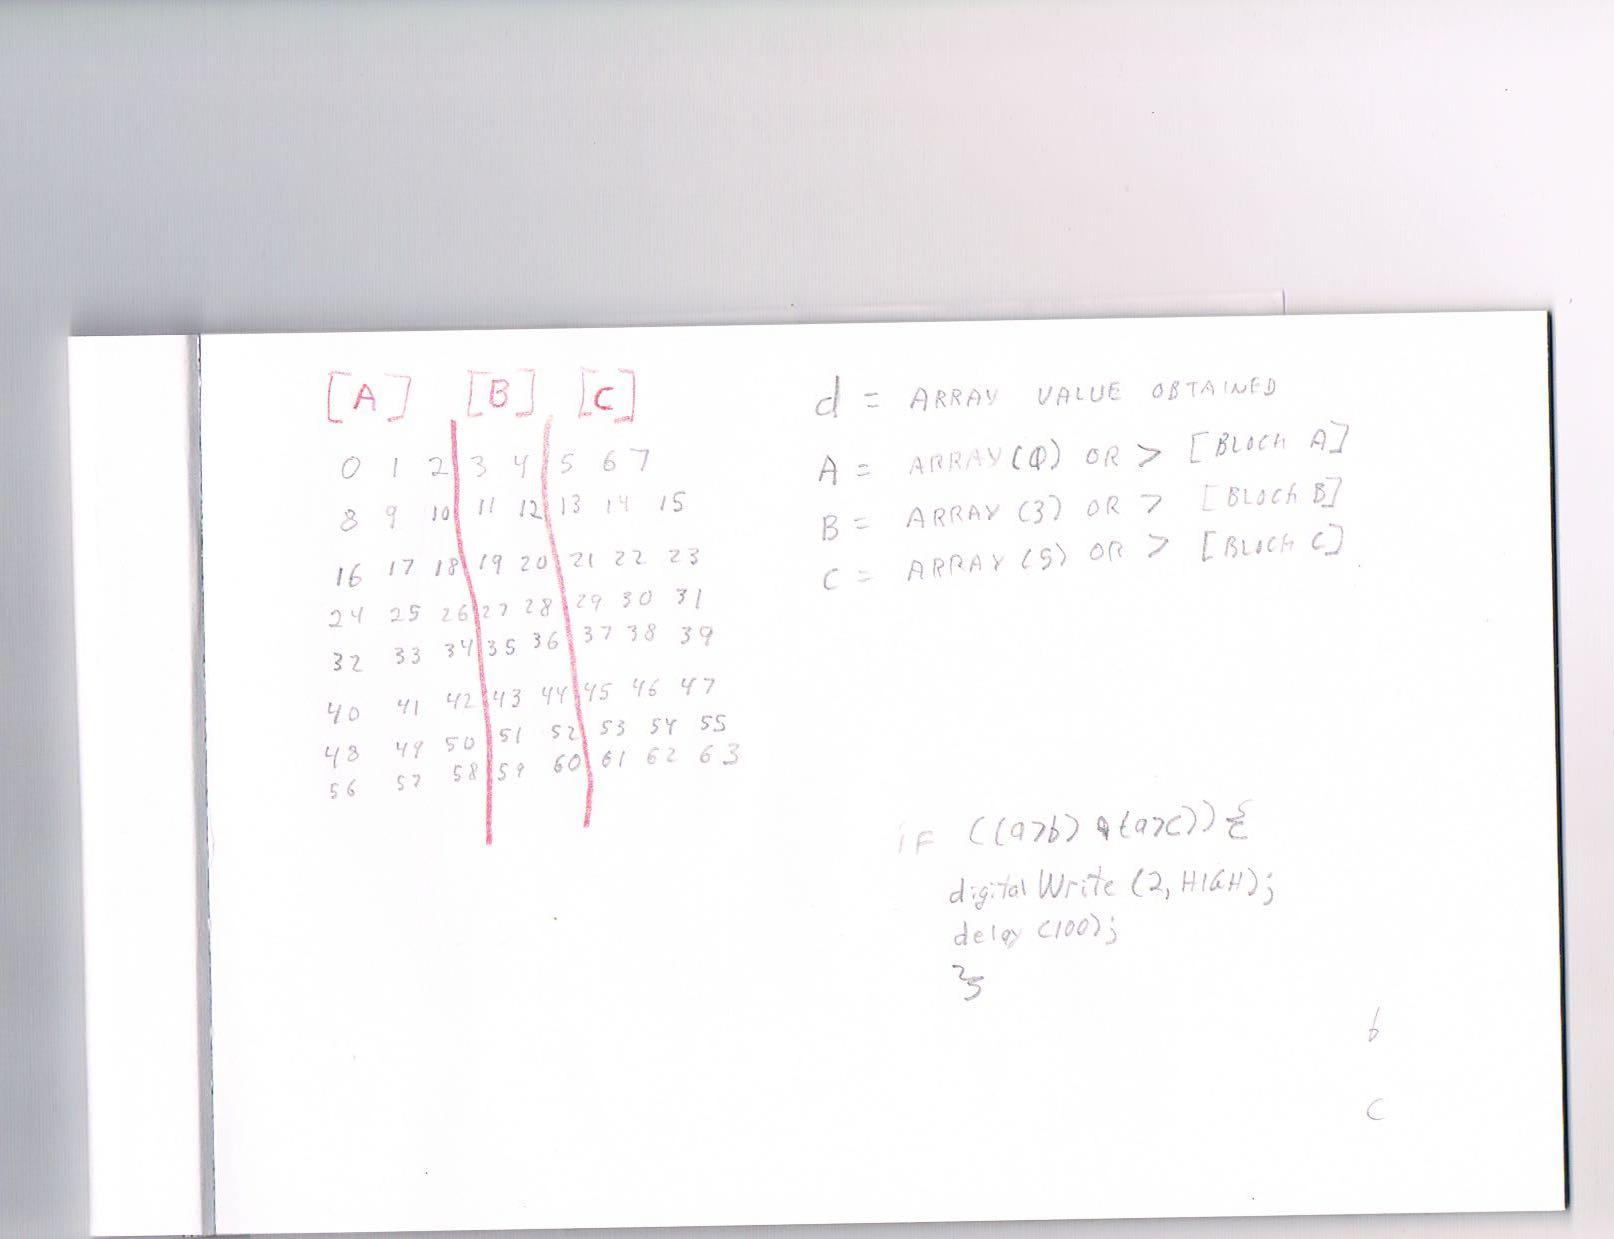 [A] [B] [C]
0 1 2 3 4 5 6 7
8 9 10 11 12 13 14 15
16 17 18 19 20 21 22 23
24 25 26 27 28 29 30 31
32 33 34 35 36 37 38 39
40 41 42 43 44 45 46 47
48 49 50 51 52 53 54 55
56 57 58 59 60 61 62 63
d = ARRAY VALUE OBTAINED
A = ARRAY(0) OR > [BLOCK A]
B = ARRAY (3) OR > [BLOCK B]
C = ARRAY (5) OR > [BLOCK C]
if ((a>b) (a>c)) {
digital Write (2, HIGH);
delay (100);
}
b
c